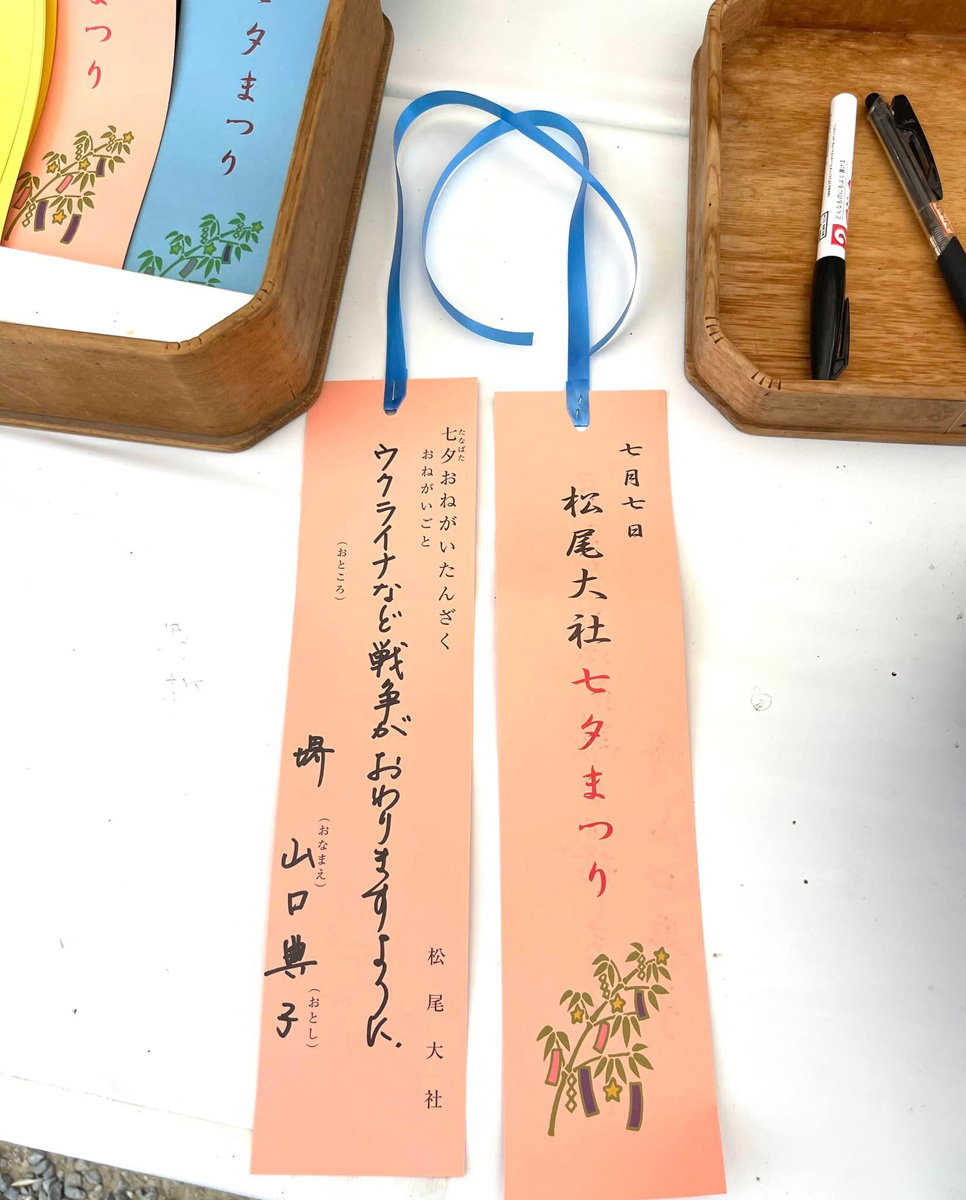 まつり
七夕まつり
七月七日
松尾大社七夕まつり
たなばた
七夕おねがいたんざく
おねがいごと
松尾大社
ウクライナなど戦争がおわりますように.
(おところ)
堺
(おなまえ)
山口典子
(おとし)